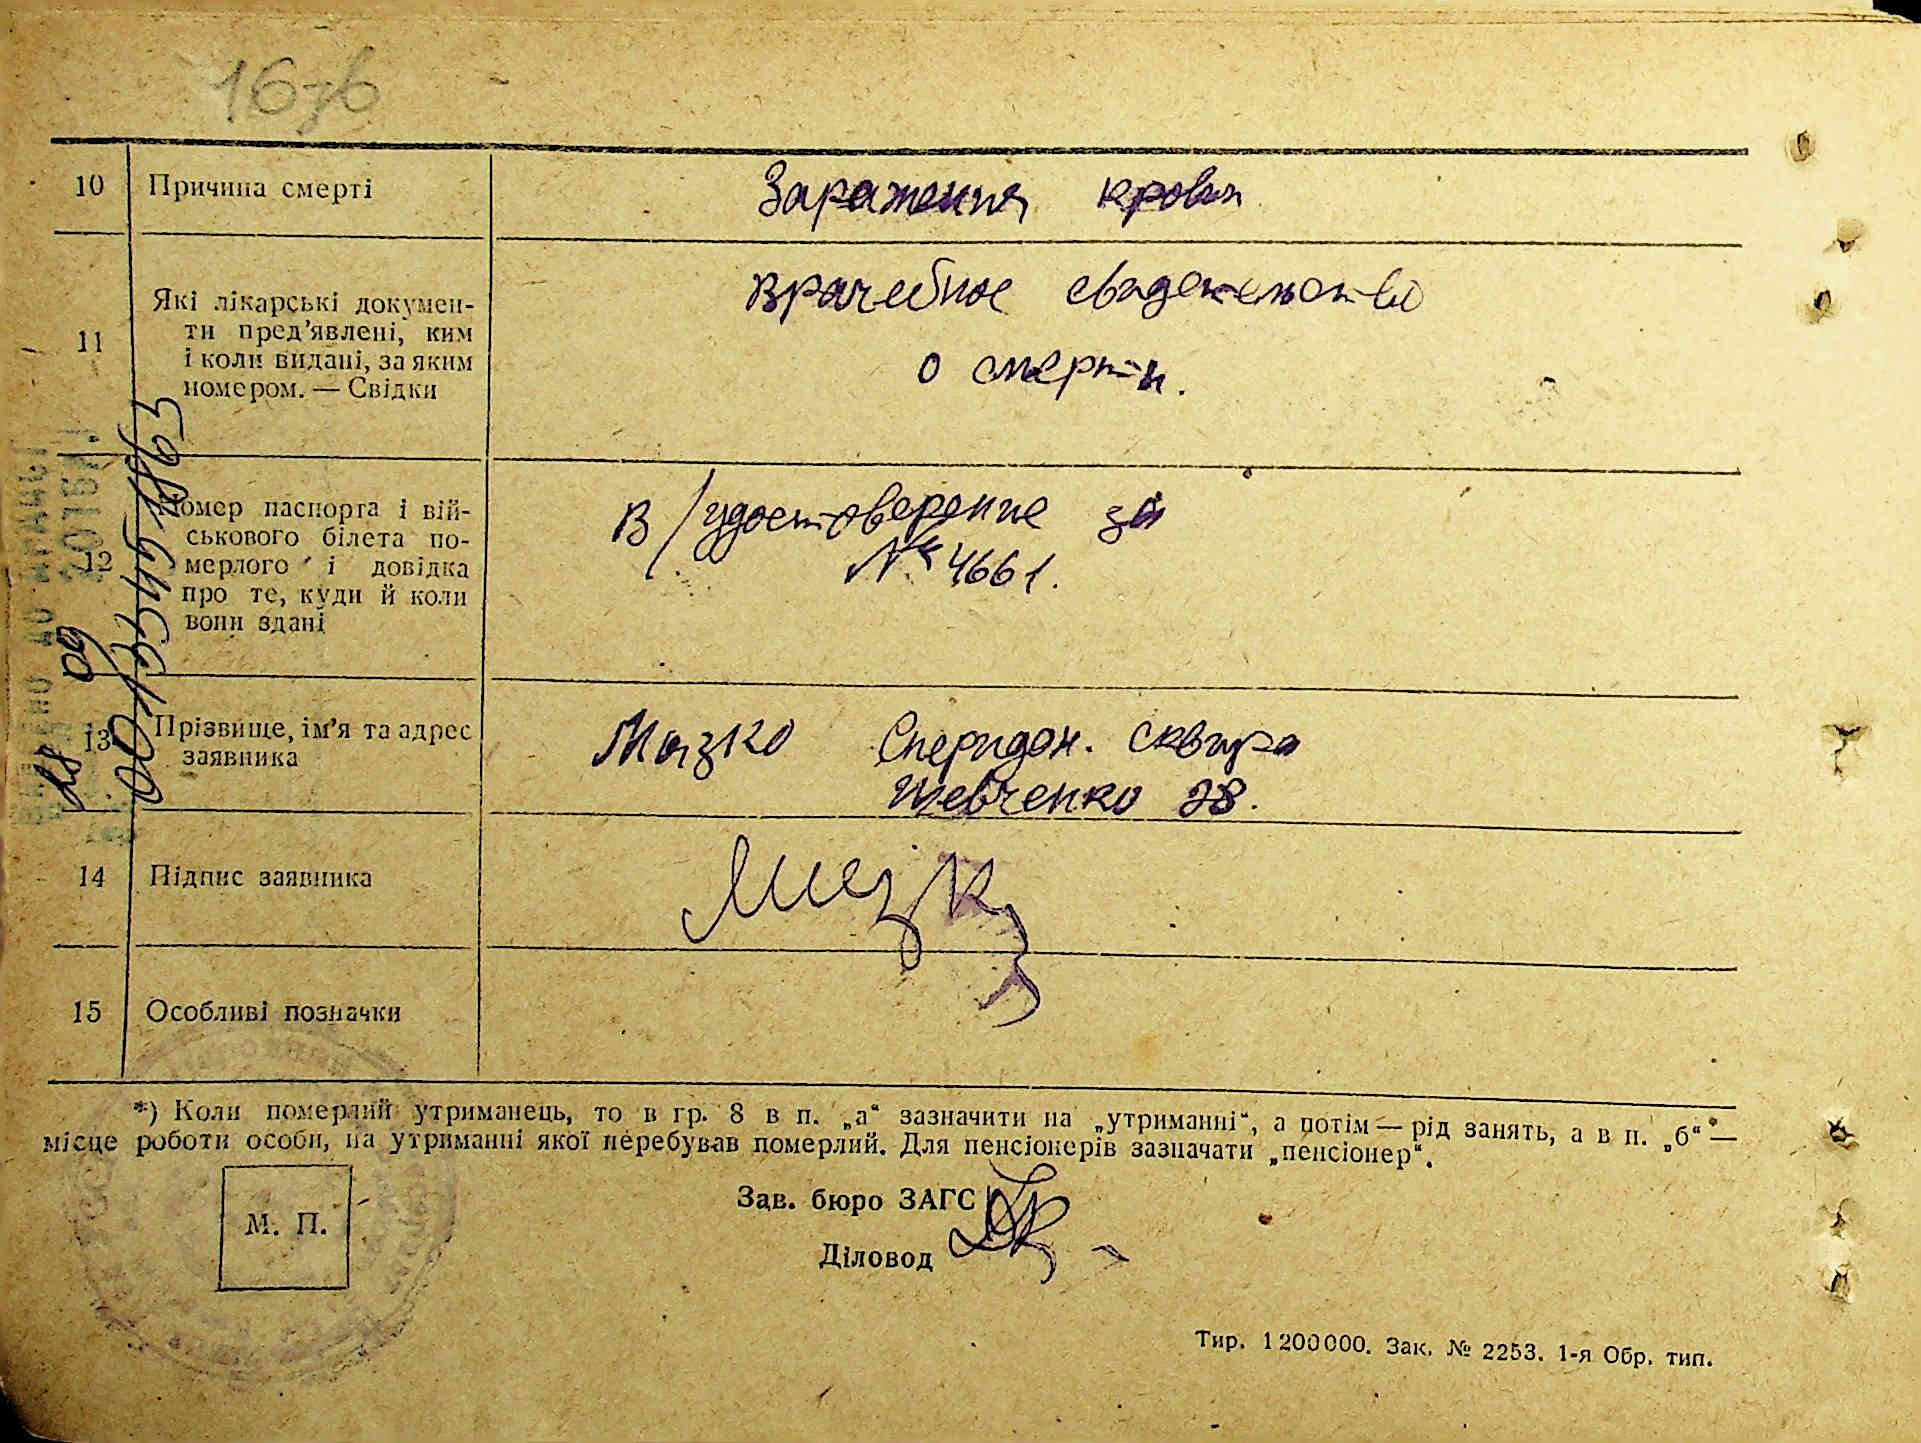 16зв
10 Причина смерті Заражения крови
11 Які лікарські докумен-
ти пред'явлені, ким
і коли видані, за яким
номером. — Свідки
Врачебное свидетельство
о смерти.
12 Номер паспорта і вій-
ськового білета по-
мерлого і довідка
про те, куди й коли
вони здані
В/удостоверение за
№ 4661.
13 Прізвище, ім'я та адрес
заявника
Мазко Сперидон. Сквира
Шевченко 28.
14 Підпис заявника
15 Особливі позначки
*) Коли померлий утриманець, то в гр. 8 в п. „а“ зазначити на „утриманні“, а потім — рід занять, а в п. „б“ —
місце роботи особи, на утриманні якої перебував померлий. Для пенсіонерів зазначати „пенсіонер“.
М. П.
Зав. бюро ЗАГС
Діловод
Тир. 1200000. Зак. № 2253. 1-я Обр. тип.